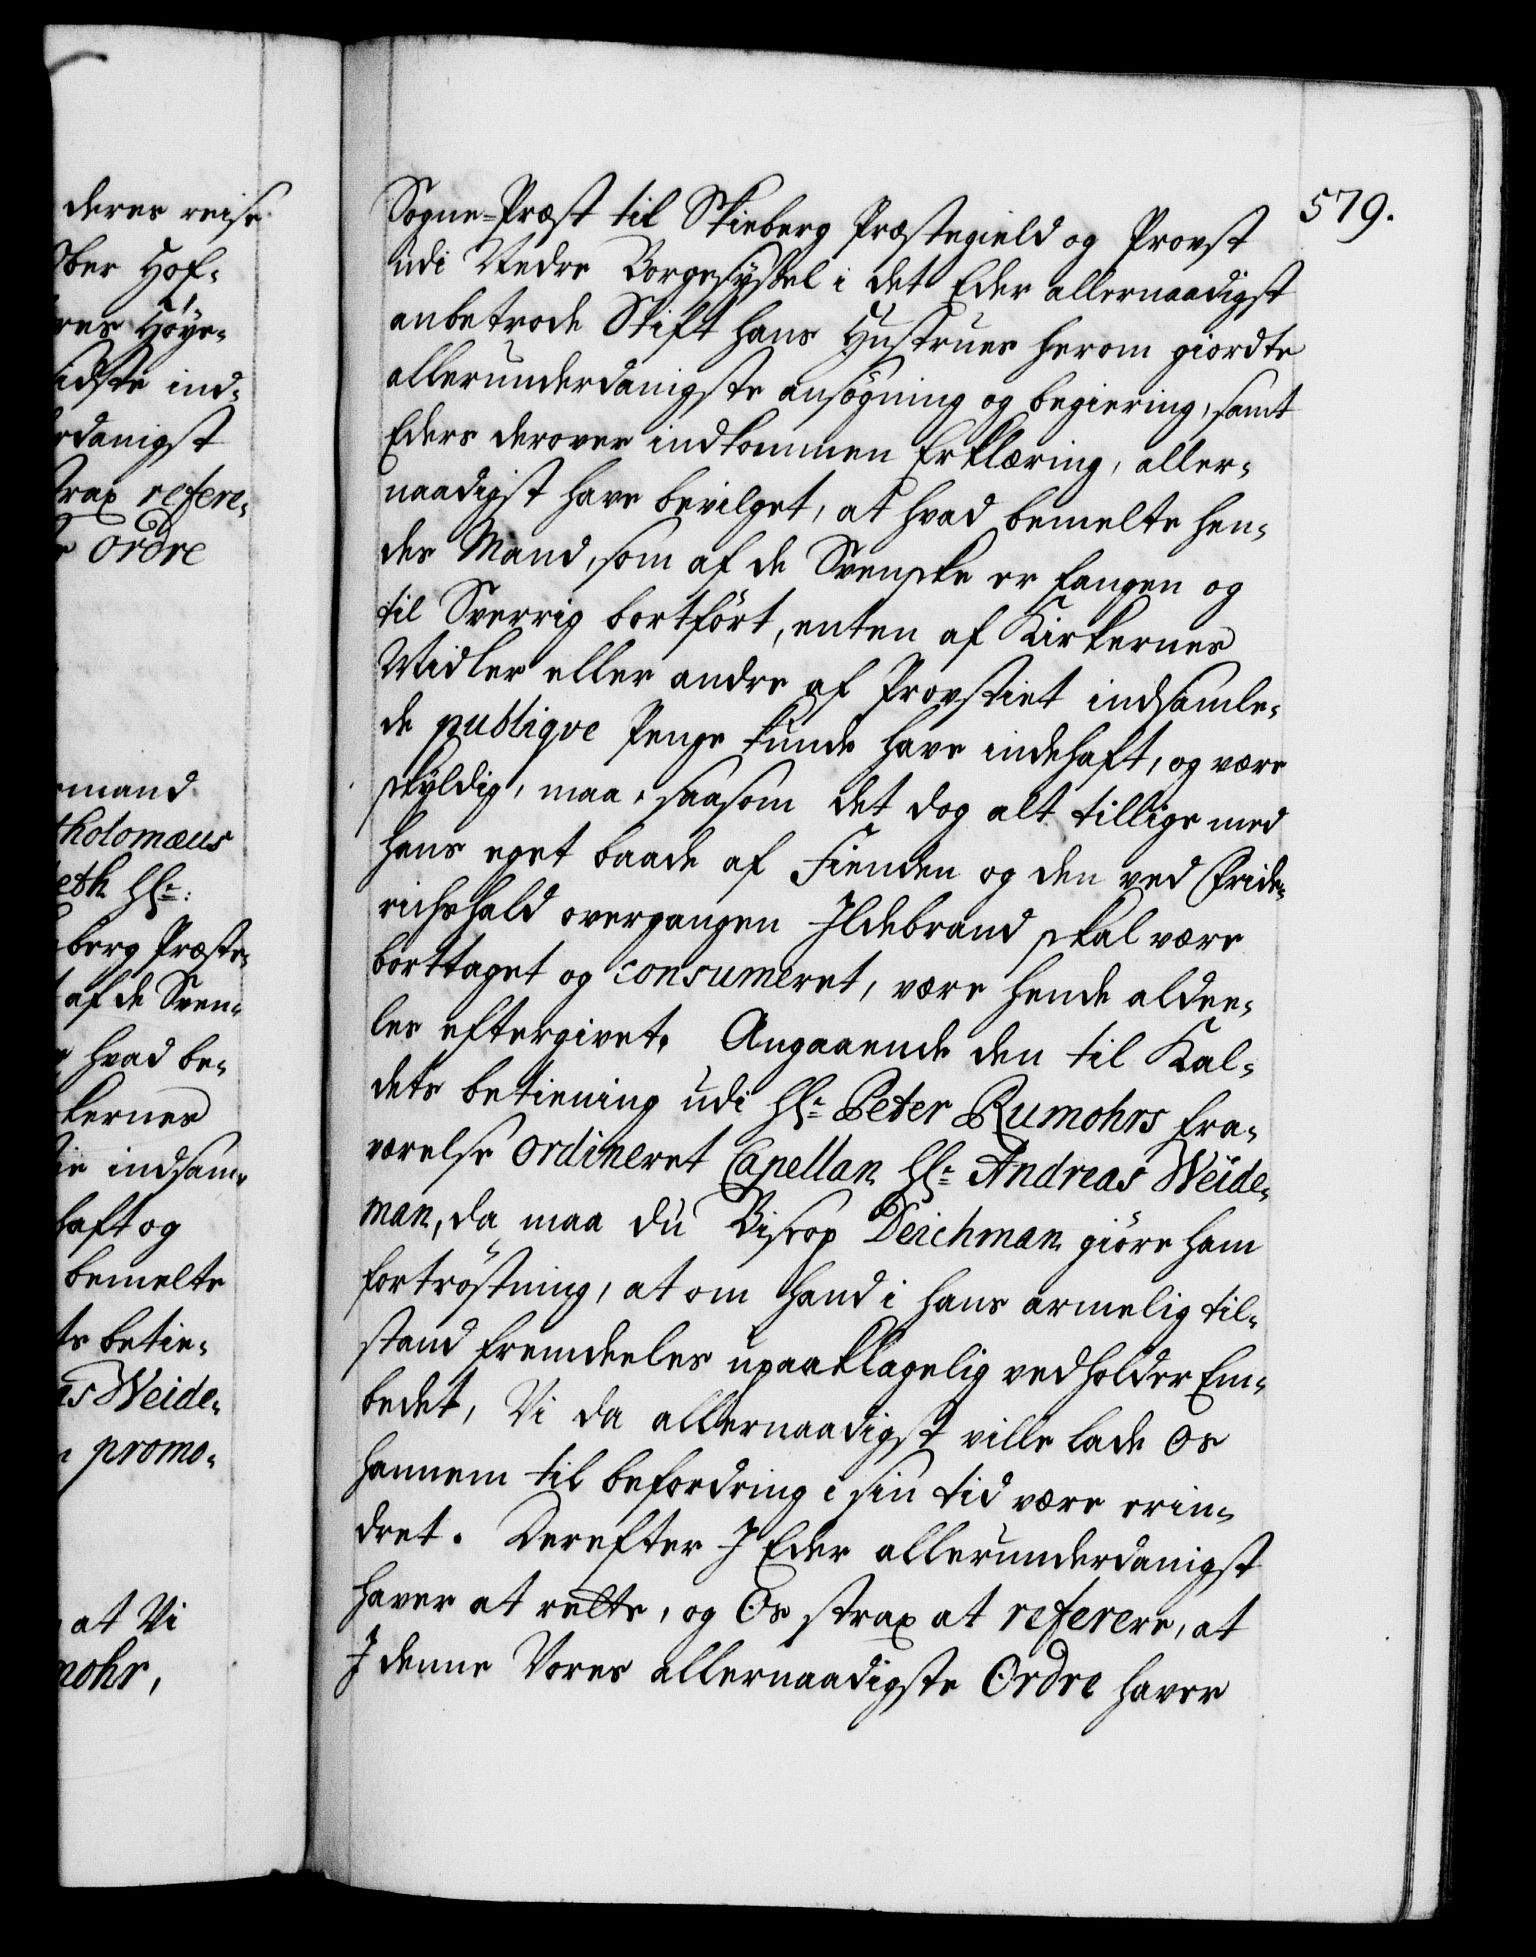 deres reise
Ober Hof-
res Höye-
sidste ind-
rdanigst
strax refere-
e Ordre
mand
tholomæus
eth Hr:
berg Præste-
af de Sven-
hvad be-
kernes
ie indsam-
haft og
bemelte
ts betie-
as Weide-
promo-
at Vi
mohr,
579.
Sogne-Præst til Skieberg Præstegield og Provst
udi Nedre Borgesyssel i det Eder allernaadigst
anbetroede Stift hans Hustrues herom giordte
allerunderdanigste ansøgning og begiering, samt
Eders derover indkommen Erklæring, aller-
naadigst have bevilget, at hvad bemelte hen-
des Mand, som af de Svenske er fangen og
til Sverrig bortført, enten af Kirkernes
Midler eller andre af Provstiet indsamle-
de publiqve Penge kunde have indehaft, og være
skyldig, maa, saasom det dog alt tillige med
hans eget baade af Fienden og den ved Fride-
richshald overgangen Ildebrand skal være
borttaget og consumeret, være hende aldee-
les eftergivet. Angaaende den til Kal-
dets betiening udi Hr. Peter Rumohrs fra-
værelse ordineret Capellan Hr. Andreas Weide-
man, da maa du Biscop Deichman giöre ham
fortröstning, at om hand i hans armelig til-
stand fremdeeles upaaklagelig vedholder Em-
bedet, Vi da allernaadigst ville lade Os
hannem til befordring i sin tid være erin-
dret. Derefter I Eder allerunderdanigst
haver at rette, og Os strax at referere, at
I denne Vores allernaadigste Ordre haver